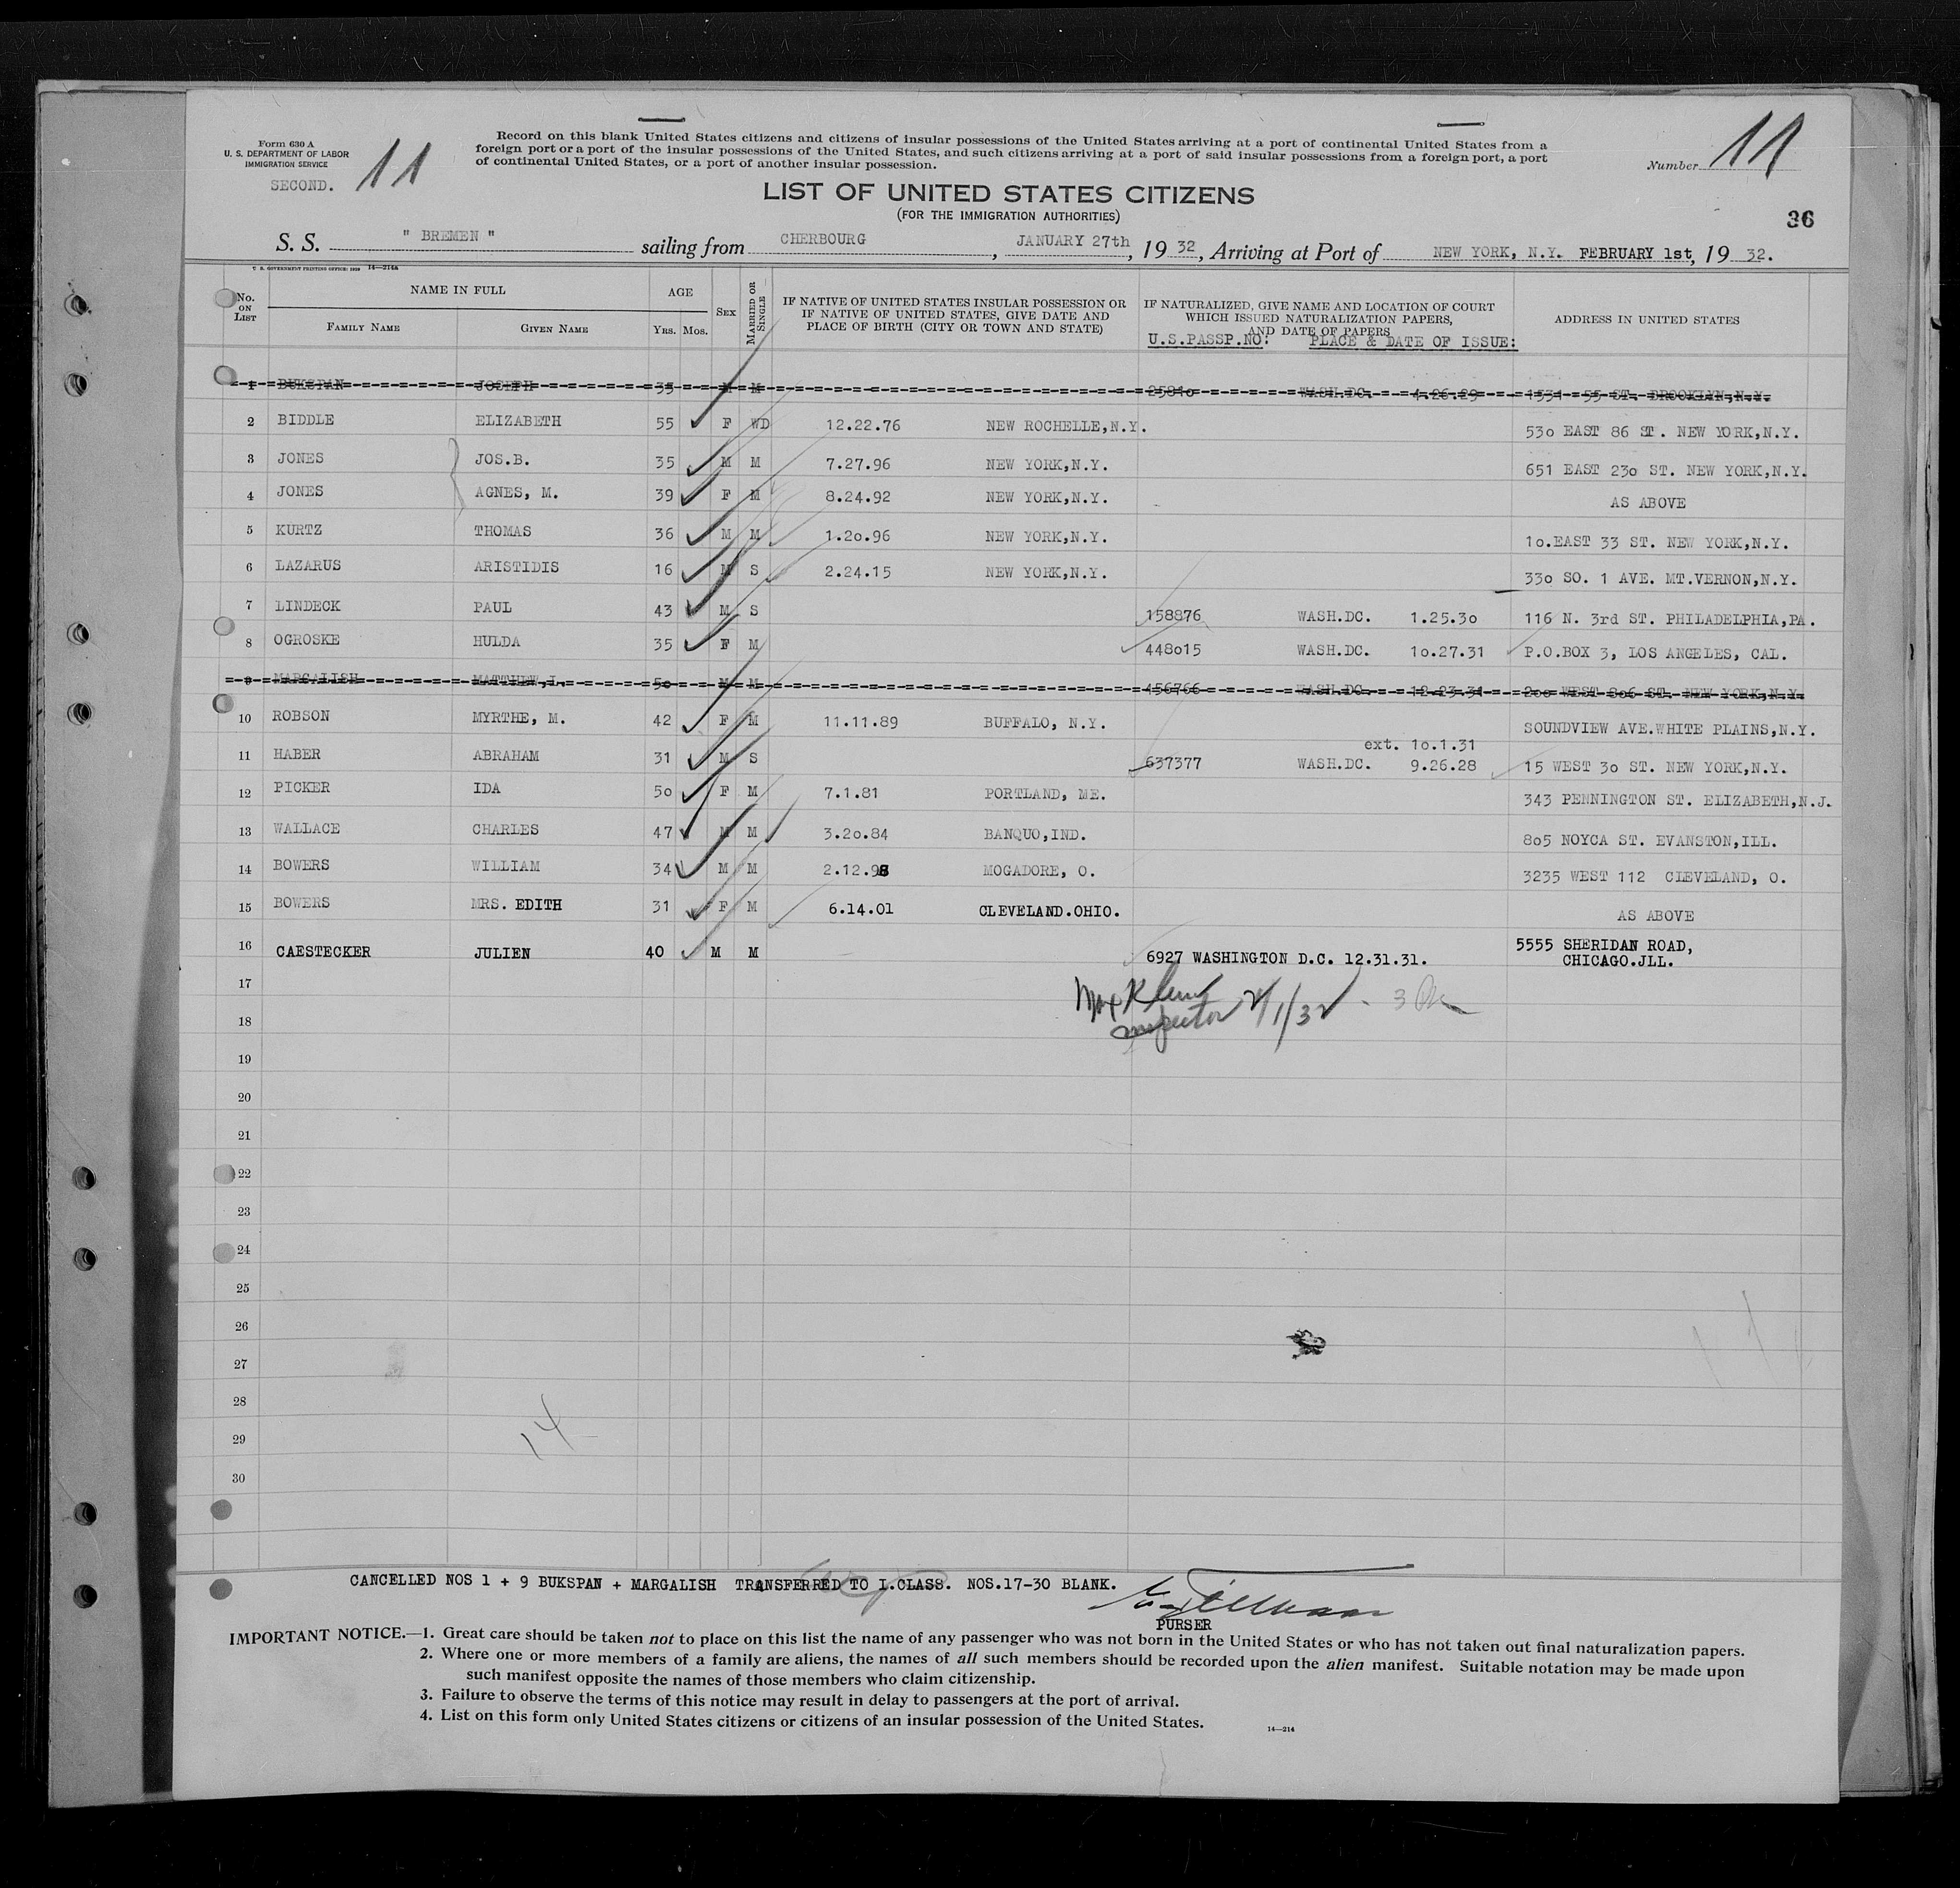 Form 630 A
U. S. DEPARTMENT OF LABOR
IMMIGRATION SERVICE
SECOND.
11
Record on this blank United States citizens and citizens of insular possessions of the United States arriving at a port of continental United States from a
foreign port or a port of the insular possessions of the United States, and such citizens arriving at a port of said insular possessions from a foreign port, a port
of continental United States, or a port of another insular possession.
Number 11
LIST OF UNITED STATES CITIZENS
(FOR THE IMMIGRATION AUTHORITIES)
36
S. S. " BREMEN " sailing from CHERBOURG, JANUARY 27th, 1932, Arriving at Port of NEW YORK, N.Y. FEBRUARY 1st, 1932.
U. S. GOVERNMENT PRINTING OFFICE: 1929 14—214A
No. ON LIST
NAME IN FULL
FAMILY NAME GIVEN NAME
AGE
YRS. MOS.
SEX
MARRIED OR SINGLE
IF NATIVE OF UNITED STATES INSULAR POSSESSION OR
IF NATIVE OF UNITED STATES, GIVE DATE AND
PLACE OF BIRTH (CITY OR TOWN AND STATE)
IF NATURALIZED, GIVE NAME AND LOCATION OF COURT
WHICH ISSUED NATURALIZATION PAPERS,
AND DATE OF PAPERS
U.S.PASSP.NO: PLACE & DATE OF ISSUE:
ADDRESS IN UNITED STATES
1 BUKSPAN JOSEPH 35 M M WASH.DC. 4.26.29 1534 55 ST. BROOKLYN,N.Y.
2 BIDDLE ELIZABETH 55 F WD 12.22.76 NEW ROCHELLE,N.Y. 530 EAST 86 ST. NEW YORK,N.Y.
3 JONES JOS.B. 35 M M 7.27.96 NEW YORK,N.Y. 651 EAST 230 ST. NEW YORK,N.Y.
4 JONES AGNES, M. 39 F M 8.24.92 NEW YORK,N.Y. AS ABOVE
5 KURTZ THOMAS 36 M M 1.20.96 NEW YORK,N.Y. 10.EAST 33 ST. NEW YORK,N.Y.
6 LAZARUS ARISTIDIS 16 M S 2.24.15 NEW YORK,N.Y. 330 SO. 1 AVE. MT.VERNON,N.Y.
7 LINDECK PAUL 43 M S 158876 WASH.DC. 1.25.30 116 N. 3rd ST. PHILADELPHIA,PA.
8 OGROSKE HULDA 35 F M 448015 WASH.DC. 10.27.31 P.O.BOX 3, LOS ANGELES, CAL.
9 MARGALISH MATTHEW,L. 50 M M 456766 WASH.DC. 12.23.31 200 WEST 806 ST. NEW YORK,N.Y.
10 ROBSON MYRTHE, M. 42 F M 11.11.89 BUFFALO, N.Y. SOUNDVIEW AVE.WHITE PLAINS,N.Y.
ext. 10.1.31
11 HABER ABRAHAM 31 M S 637377 WASH.DC. 9.26.28 15 WEST 30 ST. NEW YORK,N.Y.
12 PICKER IDA 50 F M 7.1.81 PORTLAND, ME. 343 PENNINGTON ST. ELIZABETH,N.J.
13 WALLACE CHARLES 47 M M 3.20.84 BANQUO,IND. 805 NOYCA ST. EVANSTON,ILL.
14 BOWERS WILLIAM 34 M M 2.12.98 MOGADORE, O. 3235 WEST 112 CLEVELAND, O.
15 BOWERS MRS. EDITH 31 F M 6.14.01 CLEVELAND.OHIO. AS ABOVE
16 CAESTECKER JULIEN 40 M M 6927 WASHINGTON D.C. 12.31.31. 5555 SHERIDAN ROAD,
CHICAGO.JLL.
17
Max
18
inspector 2/1/32 - 3
19
20
21
22
23
24
25
26
27
28
14
29
30
CANCELLED NOS 1 + 9 BUKSPAN + MARGALISH TRANSFERRED TO I.CLASS. NOS.17-30 BLANK.
PURSER
IMPORTANT NOTICE.—1. Great care should be taken not to place on this list the name of any passenger who was not born in the United States or who has not taken out final naturalization papers.
2. Where one or more members of a family are aliens, the names of all such members should be recorded upon the alien manifest. Suitable notation may be made upon
such manifest opposite the names of those members who claim citizenship.
3. Failure to observe the terms of this notice may result in delay to passengers at the port of arrival.
4. List on this form only United States citizens or citizens of an insular possession of the United States.
14—214